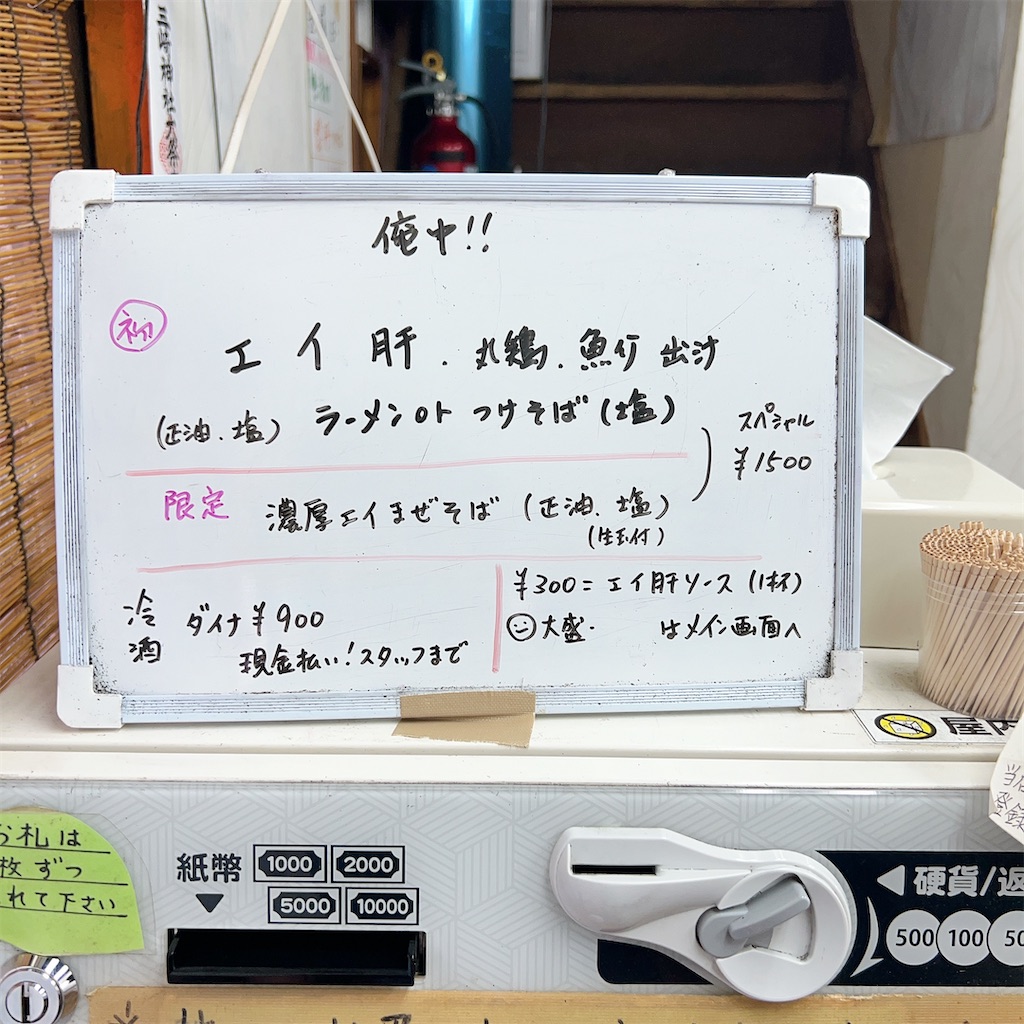 三崎神社大祭
俺中!!
初
エイ肝.丸鶏.魚行出汁
(正油.塩) ラーメンorつけそば(塩)
スペシャル
¥1500
限定 濃厚エイまぜそば (正油.塩)
(生玉付)
冷酒 ダイナ¥900
現金払い!スタッフまで
¥300=エイ肝ソース(1杯)
大盛. はメイン画面へ
屋内
お札は
枚ずつ
れて下さい
紙幣 1000 2000
5000 10000
硬貨/返
500 100 50
登録